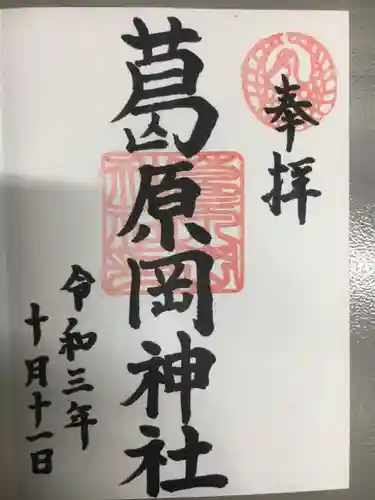 奉拝
葛原岡神社
令和三年
十月十一日